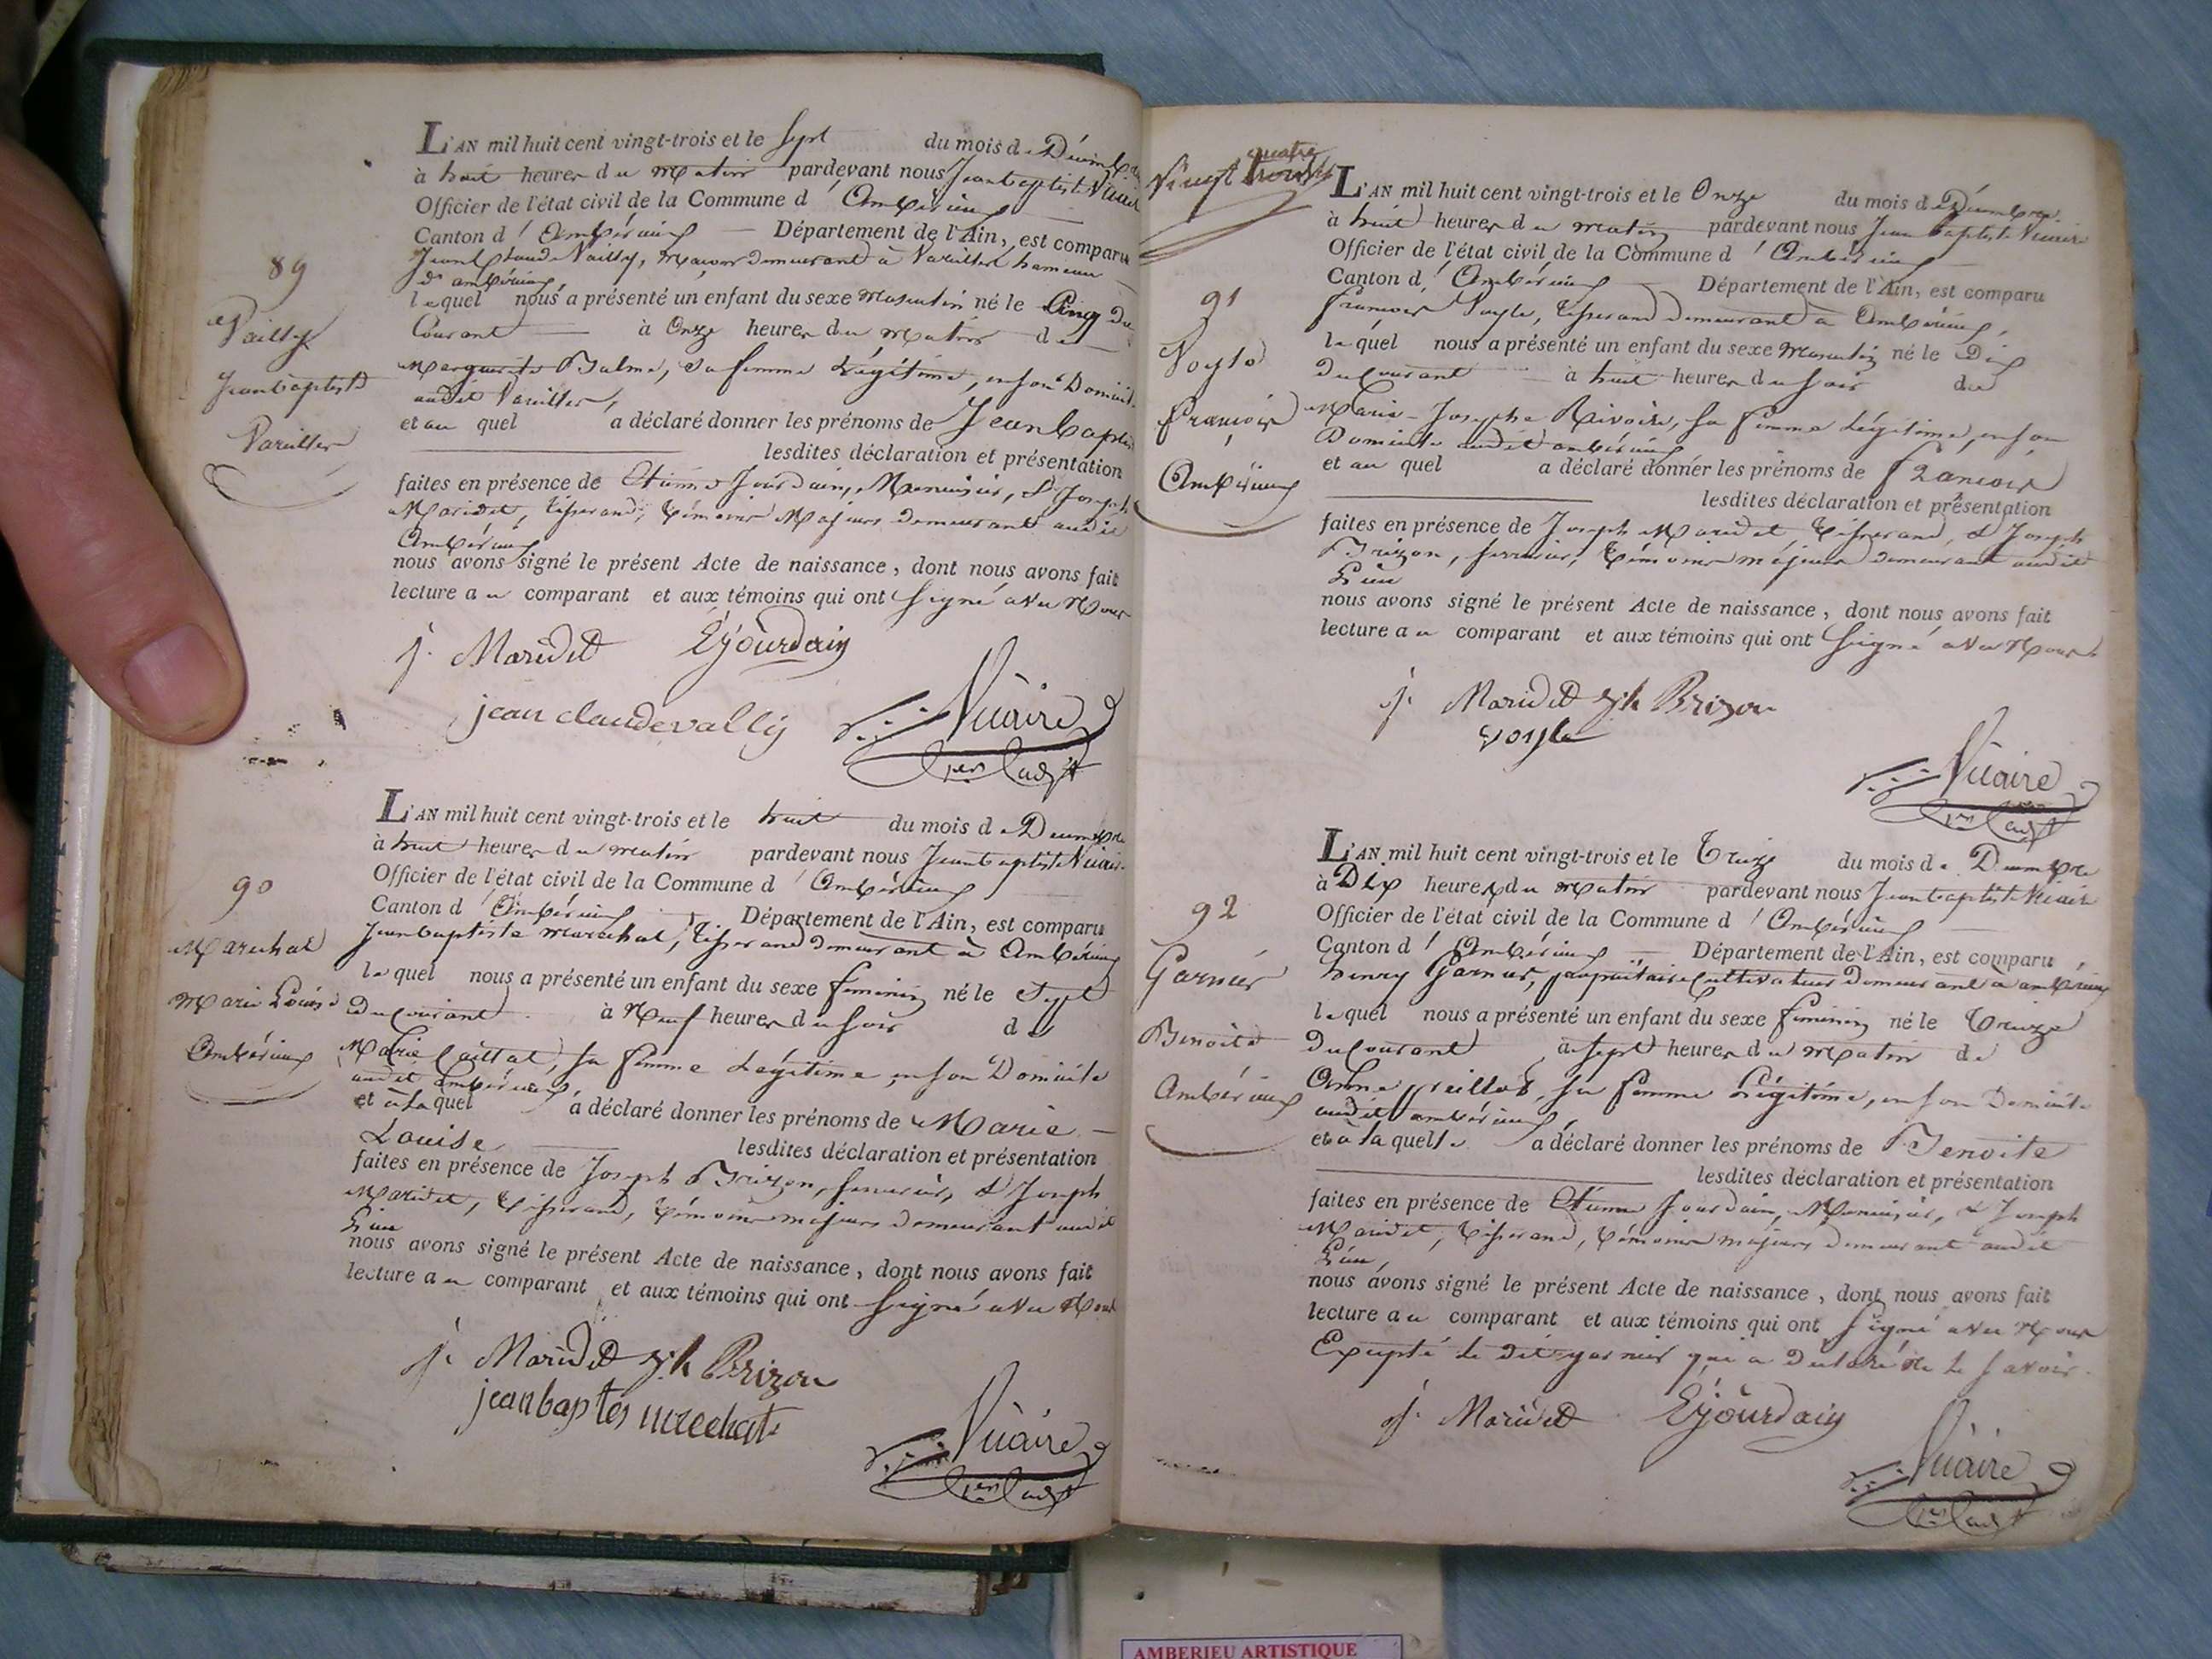 89
Vailly
Jeanbaptiste
Vareilles
L'AN mil huit cent vingt-trois et le sept du mois de Décembre
à huit heures du matin pardevant nous Jeanbaptiste Vicaire
Officier de l'état civil de la Commune d'Ambérieux
Canton d'Ambérieux Département de l'Ain, est comparu
Jean Claude Vailly, maçon demeurant à Vareilles hameau
d'ambérieux
lequel nous a présenté un enfant du sexe masculin né le Cinq du
Courant à Onze heures du matin de
Marguerite Balme, sa femme Légitime, en son Domicile
audit Vareilles,
et au quel a déclaré donner les prénoms de Jean baptiste
lesdites déclaration et présentation
faites en présence de Etienne Jourdain, Menuisier, & Joseph
Maridet, tisserand, témoins Majeurs demeurant audit
Ambérieux
nous avons signé le présent Acte de naissance, dont nous avons fait
lecture au comparant et aux témoins qui ont signé avec Nous
j. Maridet E jourdain
jean claude vally Vicaire
90
Marechal
Marie Louise
Ambérieux
L'AN mil huit cent vingt-trois et le huit du mois de Décembre
à huit heures du matin pardevant nous Jeanbaptiste Vicaire
Officier de l'état civil de la Commune d'Ambérieux
Canton d'Ambérieux Département de l'Ain, est comparu
Jeanbaptiste marechal, tisserand demeurant à Ambérieux
lequel nous a présenté un enfant du sexe feminin né le Sept
Du Courant à Neuf heures du soir de
Marie Caillat, sa femme Légitime, en son Domicile
audit ambérieux,
et à la quel a déclaré donner les prénoms de Marie
Louise lesdites déclaration et présentation
faites en présence de Joseph Brizon, serrurier, & Joseph
Maridet, tisserand, témoins majeurs demeurant audit
Lieu
nous avons signé le présent Acte de naissance, dont nous avons fait
lecture au comparant et aux témoins qui ont signé avec Nous
j. Maridet jh Brizon
jeanbaptes marechal
Vicaire
quatre
Vingt
91
Voyle
francois
Ambérieux
L'AN mil huit cent vingt-trois et le Onze du mois de Décembre
à huit heures du matin pardevant nous Jean baptiste Vicaire
Officier de l'état civil de la Commune d'Ambérieux
Canton d'Ambérieux Département de l'Ain, est comparu
francois Voyle, tisserand demeurant à Ambérieux,
lequel nous a présenté un enfant du sexe masculin né le Dix
du Courant à huit heures du soir de
Marie-Josephe Rivoire, sa femme Légitime, en son
Domicile audit ambérieux
et au quel a déclaré donner les prénoms de francois
lesdites déclaration et présentation
faites en présence de Joseph Maridet, tisserand, & Joseph
Brizon, serrurier, témoins majeurs demeurant audit
Lieu
nous avons signé le présent Acte de naissance, dont nous avons fait
lecture au comparant et aux témoins qui ont signé avec Nous
j. Maridet jh Brizon
voyle
Vicaire
92
Garnier
Benoite
Ambérieux
L'AN mil huit cent vingt-trois et le Treize du mois de Décembre
à Dix heures du matin pardevant nous Jeanbaptiste Vicaire
Officier de l'état civil de la Commune d'Ambérieux
Canton d'Ambérieux Département de l'Ain, est comparu
henry Garnier, propriétaire Cultivateur Demeurant à ambérieux
lequel nous a présenté un enfant du sexe feminin né le Treize
Du Courant à sept heures du matin de
Anne sa femme Légitime, en son Domicile
audit ambérieux,
et à la quelle a déclaré donner les prénoms de Benoite
lesdites déclaration et présentation
faites en présence de Etienne Jourdain, Menuisier, & Joseph
Maridet, tisserand, témoins majeurs demeurant audit
Lieu,
nous avons signé le présent Acte de naissance, dont nous avons fait
lecture au comparant et aux témoins qui ont signé avec Nous
Excepté le dit garnier qui a Declaré Ne le savoir.
j. Maridet E jourdain
Vicaire
AMBERIEU ARTISTIQUE